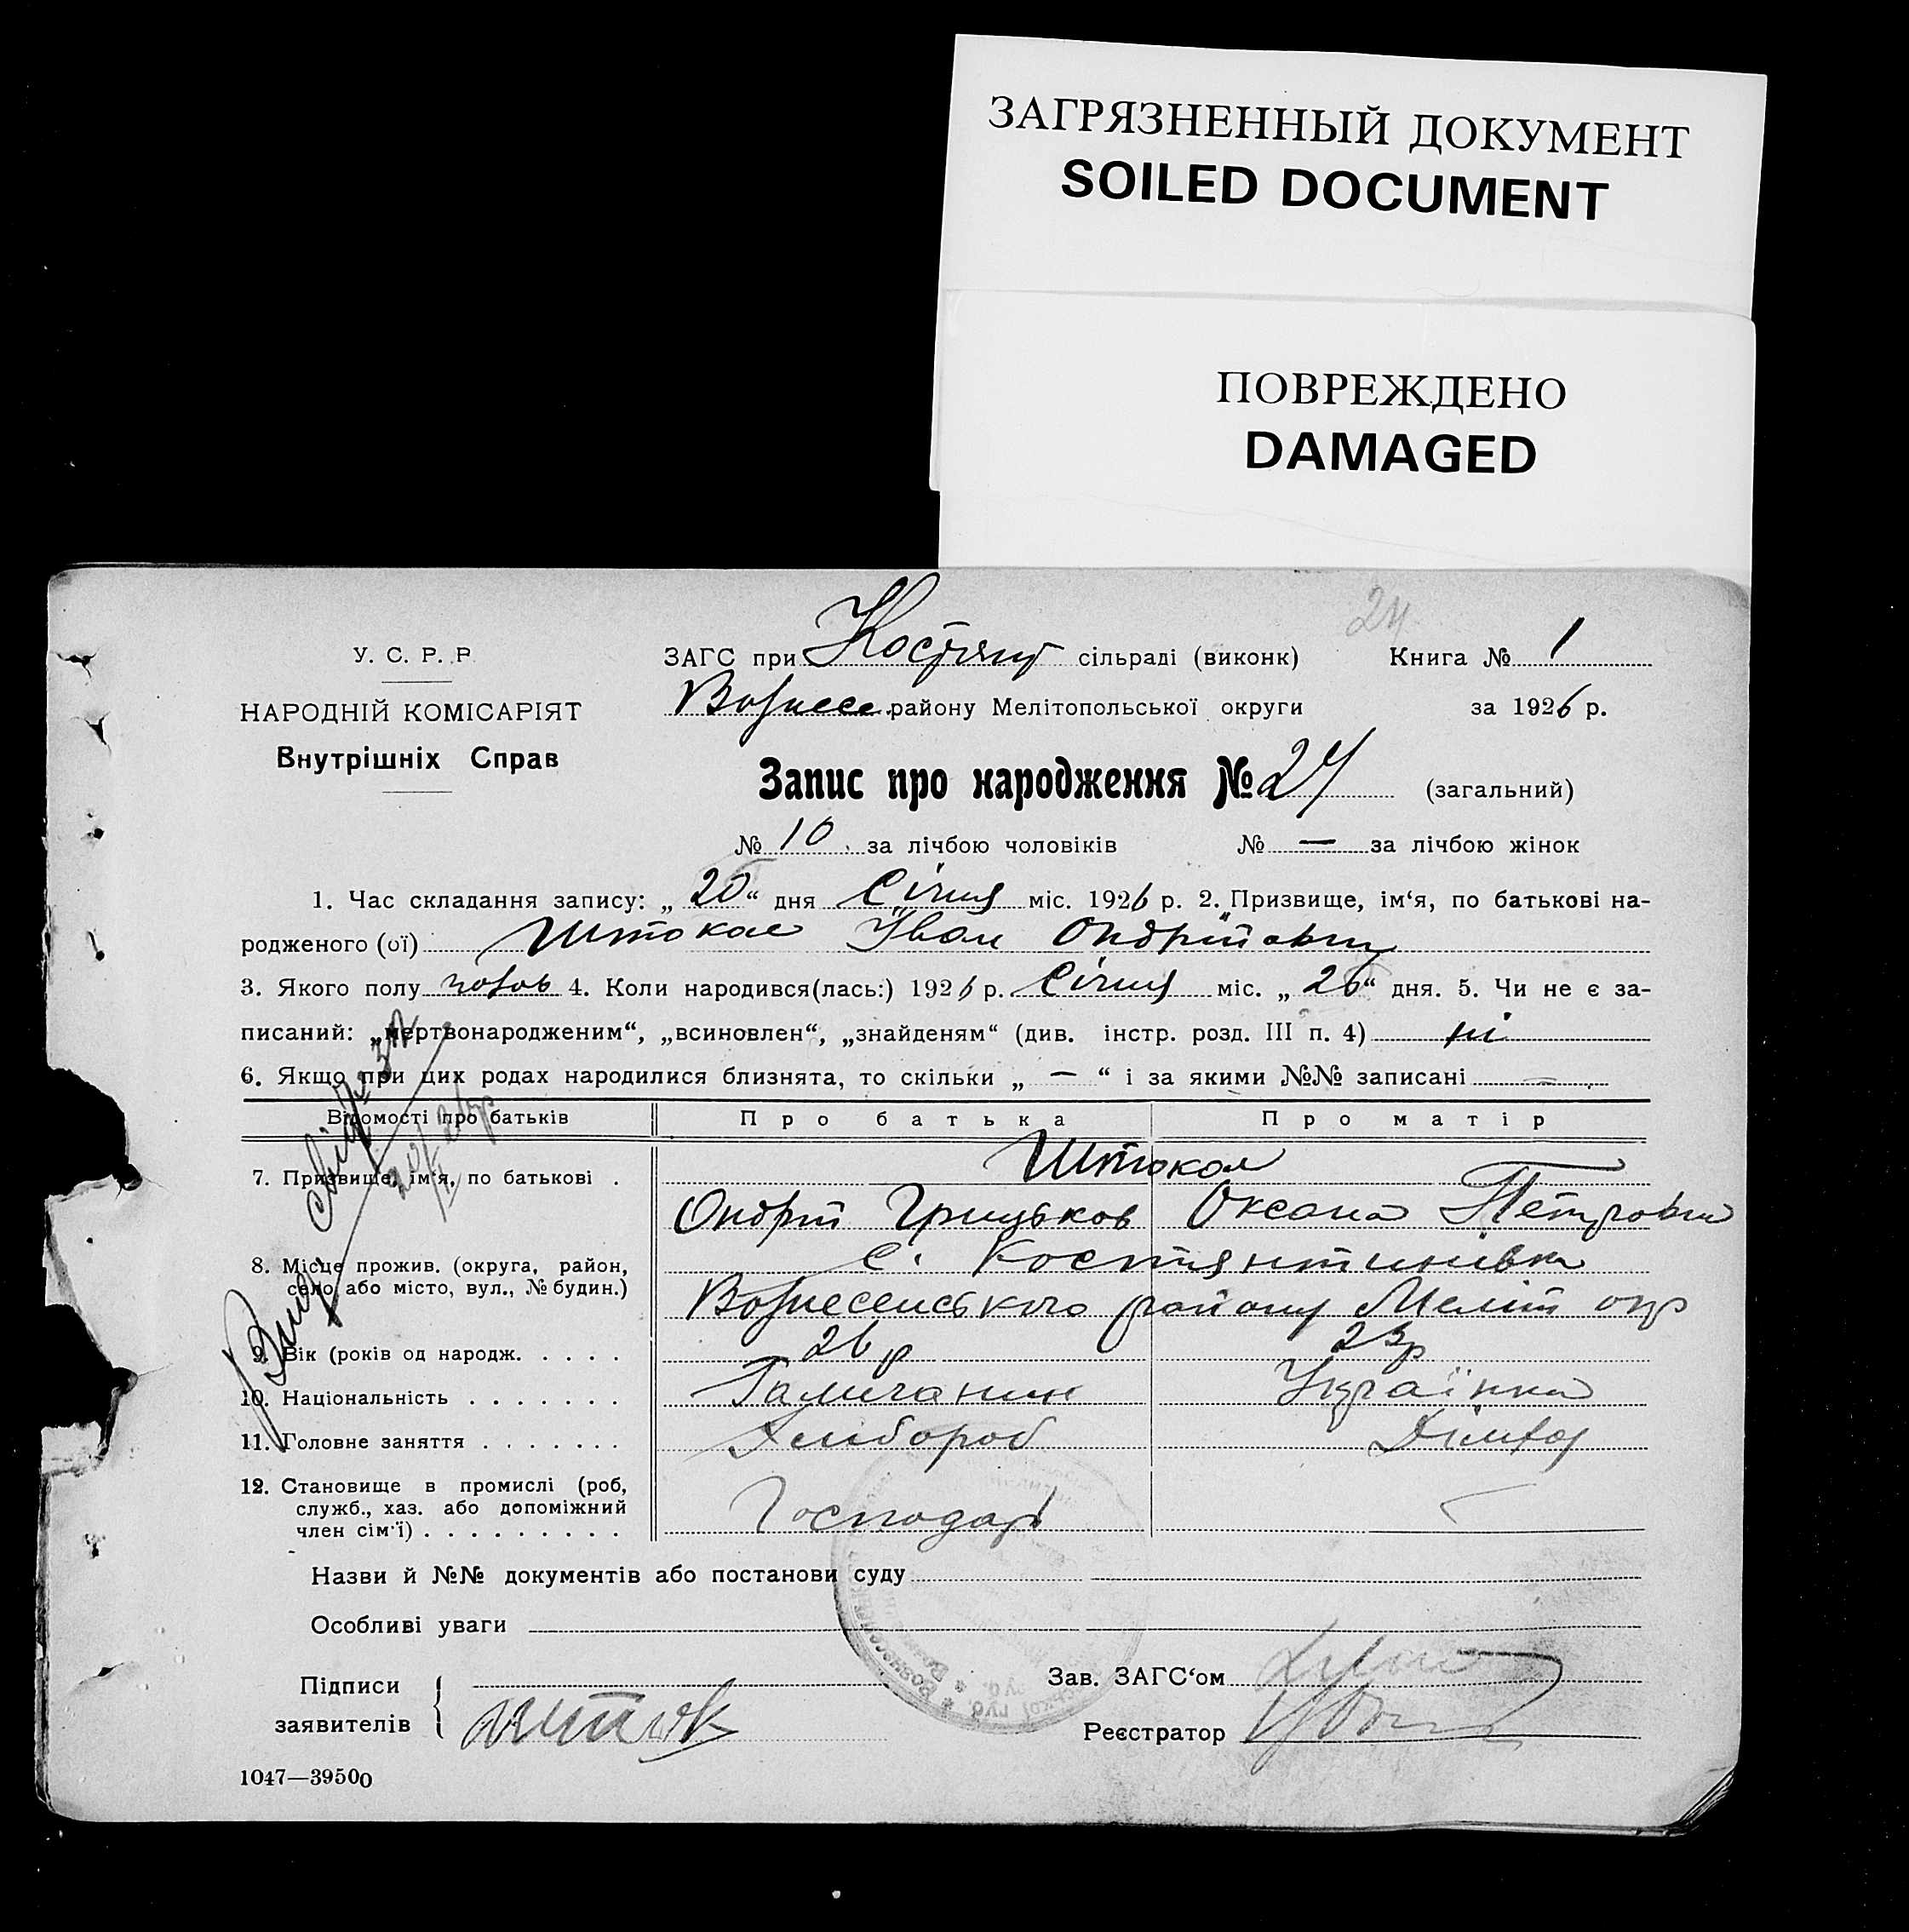 ЗАГРЯЗНЕННЫЙ ДОКУМЕНТ
SOILED DOCUMENT
ПОВРЕЖДЕНО
DAMAGED
24
У. С. Р. Р
ЗАГС при Костянт сільраді (виконк) Книга № 1
НАРОДНІЙ КОМІСАРІЯТ
Вознесе. району Мелітопольської округи за 1926 р.
Внутрішніх Справ
Запис про народження № 24 (загальний)
№ 10 за лічбою чоловіків № — за лічбою жінок
1. Час складання запису: „ 20 “ дня Січня міс. 1926 р. 2. Призвище, ім‘я, по батькові на-
родженого (ої) Штокал Іван Ондрійович
3. Якого полу чолов 4. Коли народився(лась:) 1926 р. Січня міс. „ “ дня. 5. Чи не є за-
писаний: „мертвонародженим“, „всиновлен“, „знайденям“ (див. інстр. розд. III п. 4) ні
6. Якщо при цих родах народилися близнята, то скільки „ — “ і за якими №№ записані —
Відомості про батьків Про батька Про матір
Штокал
7. Призвище, ім‘я, по батькові .
Ондрій Грицьков Оксана Петровна
8. Місце прожив. (округа, район, с. Костянтинівка
село або місто, вул., № будин.)
Вознесенського району Меліт окр
9. Вік (років од народж. . . . . 26 р 23р
10. Національність . . . . . . . Галичанин Українка
11. Головне заняття . . . . . . . Хлібороб
12. Становище в промислі (роб,
служб., хаз. або допоміжний
член сім‘ї) . . . . . . . . . Господар
Назви й №№ документів або постанови суду
Особливі уваги
Підписи
Зав. ЗАГС‘ом
заявителів Шток
Реєстратор
1047—39500